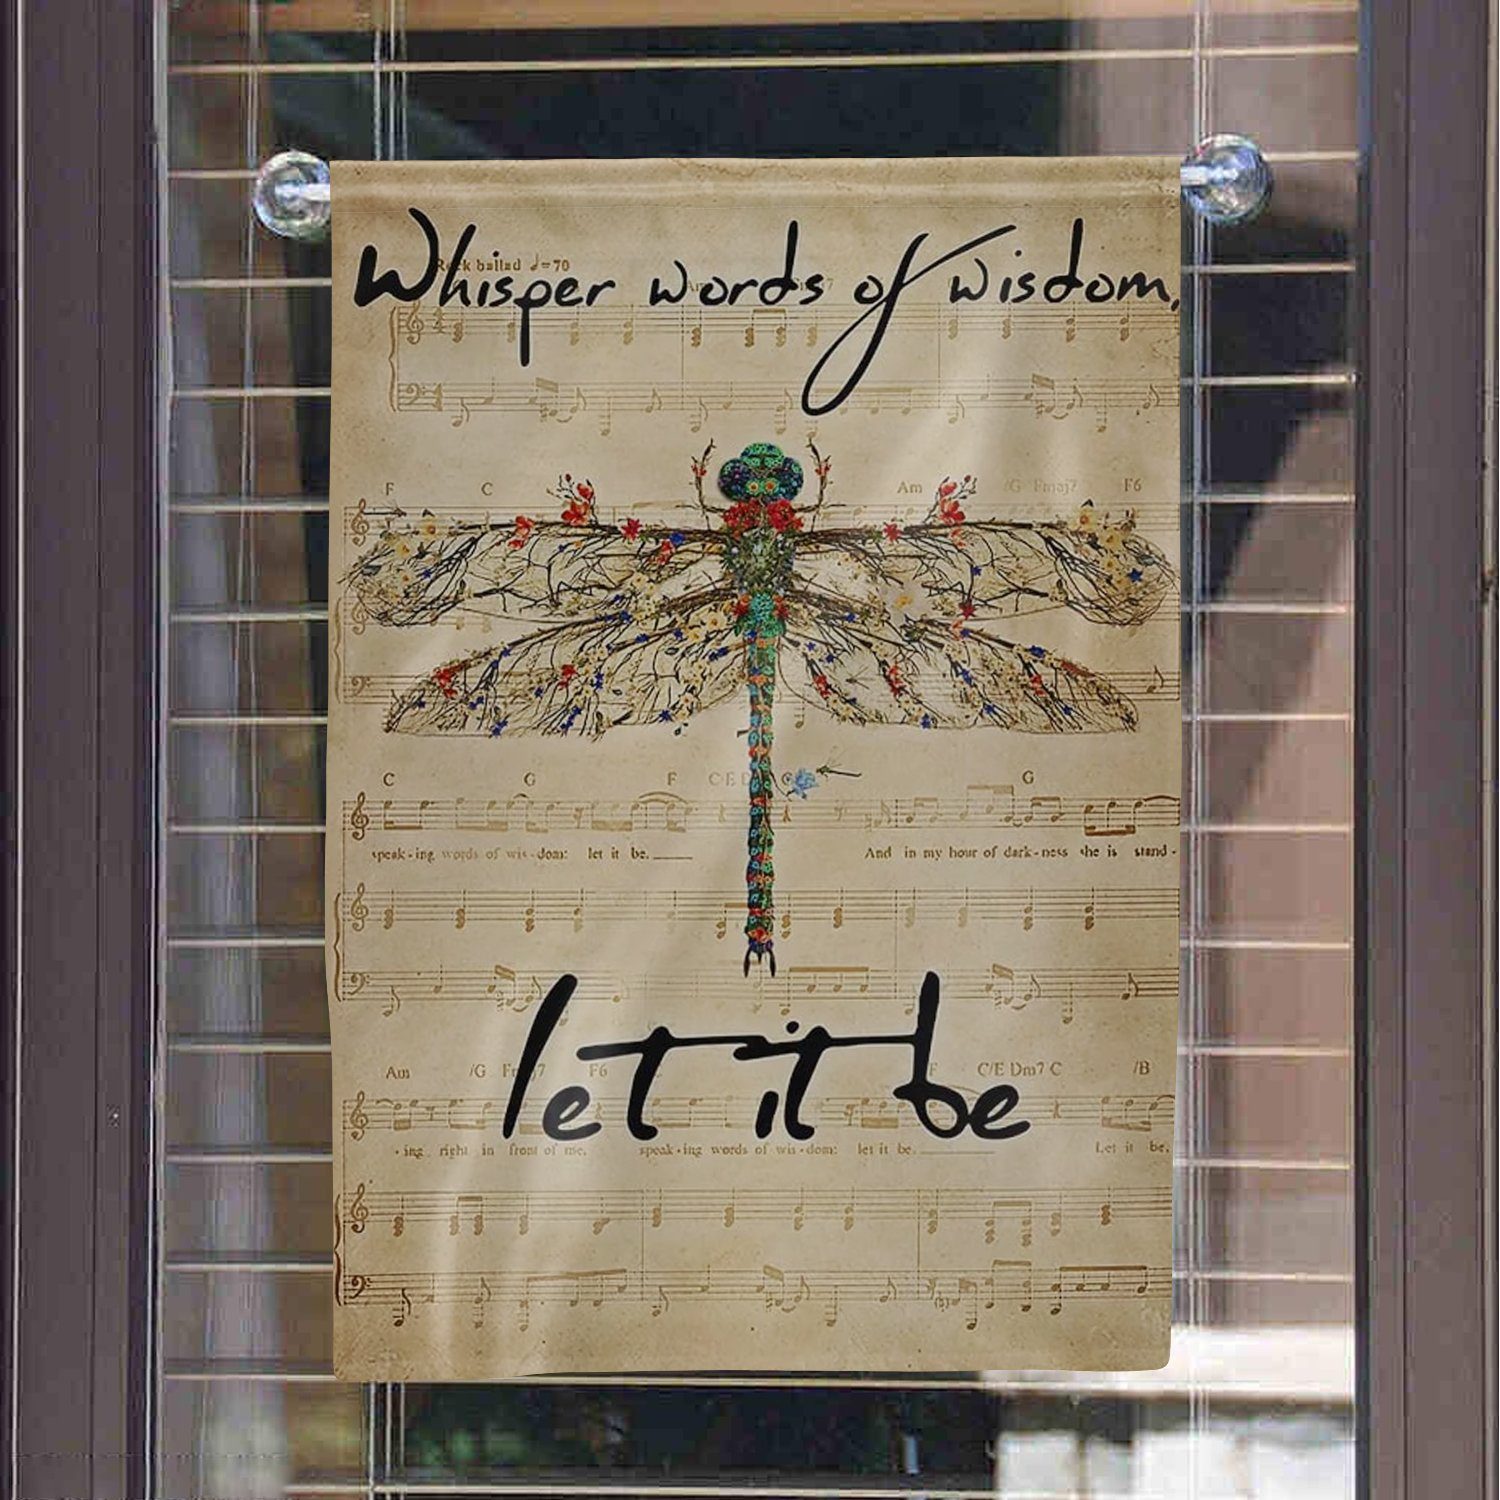 Whisper words of wisdom,
Rock ballad ♩=70
F C Am /G Fmaj7 F6
C G F C E D G
speak-ing words of wis-dom: let it be. And in my hour of dark-ness she is stand-
let it be
Am /G Fmaj7 F6 F C/E Dm7 C /B
-ing right in front of me, speak-ing words of wis-dom: let it be. Let it be,